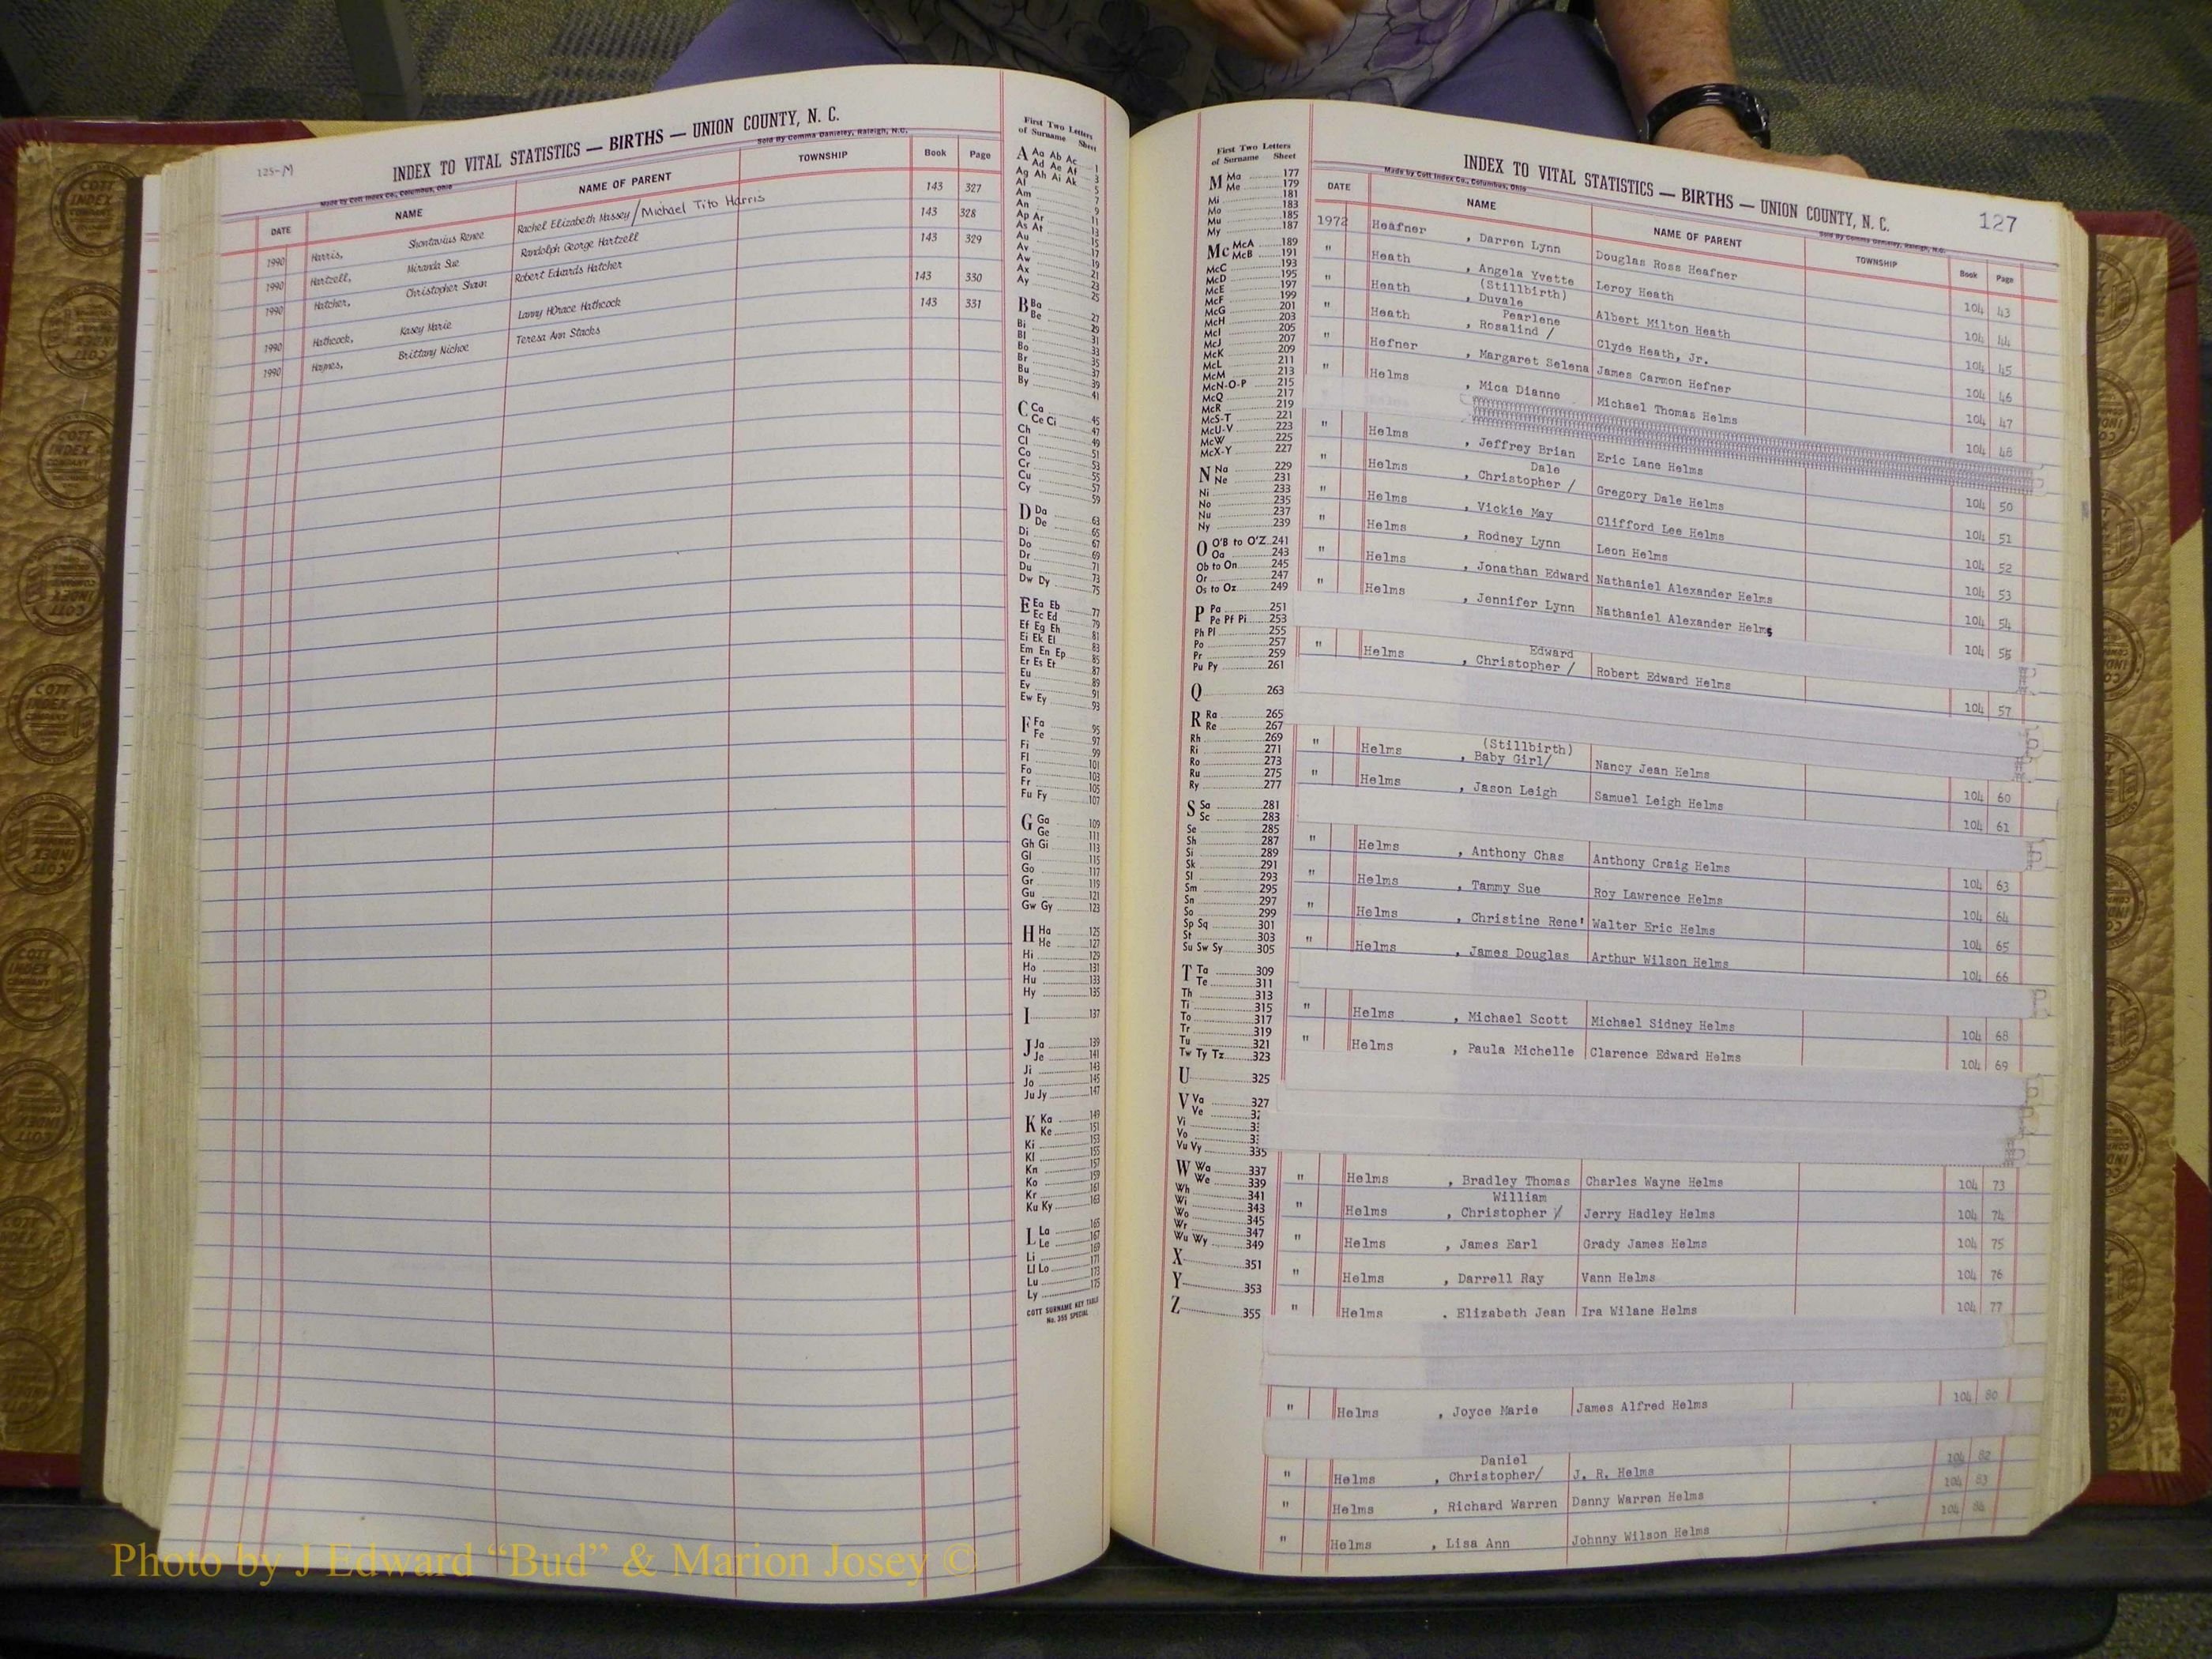 125-M
INDEX TO VITAL STATISTICS — BIRTHS — UNION COUNTY, N. C.
Made by Cott Index Co., Columbus, Ohio Sold By Comma Danieley, Raleigh, N.C.
DATE NAME NAME OF PARENT TOWNSHIP Book Page
1990 Harris, Shontavius Renee Rachel Elizabeth Massey / Michael Tito Harris 143 327
1990 Hartzell, Miranda Sue Randolph George Hartzell 143 328
1990 Hatcher, Christopher Shawn Robert Edwards Hatcher 143 329
1990 Hathcock, Kasey Marie Lanny HOrace Hathcock 143 330
1990 Haynes, Brittany Nichoe Teresa Ann Stacks 143 331
First Two Letters
of Surname Sheet
A Aa Ab Ac 1
Ad Ae Af 3
Ag Ah Ai Ak 5
Al 7
Am 9
An 11
Ap Ar 13
As At 15
Au 17
Av 19
Aw 21
Ax 23
Ay 25
B Ba 27
Be 29
Bi 31
Bl 33
Bo 35
Br 37
Bu 39
By 41
C Ca 45
Ce Ci 47
Ch 49
Cl 51
Co 53
Cr 55
Cu 57
Cy 59
D Da 63
De 65
Di 67
Do 69
Dr 71
Du 73
Dw Dy 75
E Ea Eb 77
Ec Ed 79
Ef Eg Eh 81
Ei Ek El 83
Em En Ep 85
Er Es Et 87
Eu 89
Ev 91
Ew Ey 93
F Fa 95
Fe 97
Fi 99
Fl 101
Fo 103
Fr 105
Fu Fy 107
G Ga 109
Ge 111
Gh Gi 113
Gl 115
Go 117
Gr 119
Gu 121
Gw Gy 123
H Ha 125
He 127
Hi 129
Ho 131
Hu 133
Hy 135
I 137
J Ja 139
Je 141
Ji 143
Jo 145
Ju Jy 147
K Ka 149
Ke 151
Ki 153
Kl 155
Kn 157
Ko 159
Kr 161
Ku Ky 163
L La 165
Le 167
Li 169
Ll Lo 171
Lu 173
Ly 175
COTT SURNAME KEY TABLE
No. 355 SPECIAL
First Two Letters
of Surname Sheet
M Ma 177
Me 179
Mi 181
Mo 183
Mu 185
My 187
Mc McA 189
McB 191
McC 193
McD 195
McE 197
McF 199
McG 201
McH 203
McI 205
McJ 207
McK 209
McL 211
McM 213
McN-O-P 215
McQ 217
McR 219
McS-T 221
McU-V 223
McW 225
McX-Y 227
N Na 229
Ne 231
Ni 233
No 235
Nu 237
Ny 239
O O'B to O'Z 241
Oa 243
Ob to On 245
Or 247
Os to Oz 249
P Pa 251
Pe Pf Pi 253
Ph Pl 255
Po 257
Pr 259
Pu Py 261
Q 263
R Ra 265
Re 267
Rh 269
Ri 271
Ro 273
Ru 275
Ry 277
S Sa 281
Sc 283
Se 285
Sh 287
Si 289
Sk 291
Sl 293
Sm 295
Sn 297
So 299
Sp Sq 301
St 303
Su Sw Sy 305
T Ta 309
Te 311
Th 313
Ti 315
To 317
Tr 319
Tu 321
Tw Ty Tz 323
U 325
V Va 327
Ve
Vi
Vo
Vu Vy 335
W Wa 337
We 339
Wh 341
Wi 343
Wo 345
Wr 347
Wu Wy 349
X 351
Y 353
Z 355
127
INDEX TO VITAL STATISTICS — BIRTHS — UNION COUNTY, N. C.
Made by Cott Index Co., Columbus, Ohio Sold By Comma Danieley, Raleigh, N.C.
DATE NAME NAME OF PARENT TOWNSHIP Book Page
1972 Heafner , Darren Lynn Douglas Ross Heafner 104 43
" Heath , Angela Yvette Leroy Heath 104 44
(Stillbirth)
" Heath , Duvale Albert Milton Heath 104 45
Pearlene
" Heath , Rosalind / Clyde Heath, Jr. 104 46
" Hefner , Margaret Selena James Carmon Hefner 104 47
" Helms , Mica Dianne Michael Thomas Helms 104 48
" Helms , Jeffrey Brian Eric Lane Helms 104 50
Dale
" Helms , Christopher / Gregory Dale Helms 104 51
" Helms , Vickie May Clifford Lee Helms 104 52
" Helms , Rodney Lynn Leon Helms 104 53
" Helms , Jonathan Edward Nathaniel Alexander Helms 104 54
" Helms , Jennifer Lynn Nathaniel Alexander Helms 104 55
Edward
" Helms , Christopher / Robert Edward Helms 104 57
(Stillbirth)
" Helms , Baby Girl/ Nancy Jean Helms 104 60
" Helms , Jason Leigh Samuel Leigh Helms 104 61
" Helms , Anthony Chas Anthony Craig Helms 104 63
" Helms , Tammy Sue Roy Lawrence Helms 104 64
" Helms , Christine Rene' Walter Eric Helms 104 65
" Helms , James Douglas Arthur Wilson Helms 104 66
" Helms , Michael Scott Michael Sidney Helms 104 68
" Helms , Paula Michelle Clarence Edward Helms 104 69
" Helms , Bradley Thomas Charles Wayne Helms 104 73
William
" Helms , Christopher / Jerry Hadley Helms 104 74
" Helms , James Earl Grady James Helms 104 75
" Helms , Darrell Ray Vann Helms 104 76
" Helms , Elizabeth Jean Ira Wilane Helms 104 77
" Helms , Joyce Marie James Alfred Helms 104 80
Daniel
" Helms , Christopher/ J. R. Helms 104 82
" Helms , Richard Warren Danny Warren Helms 104 83
" Helms , Lisa Ann Johnny Wilson Helms 104 84
Photo by J Edward “Bud” & Marion Josey ©